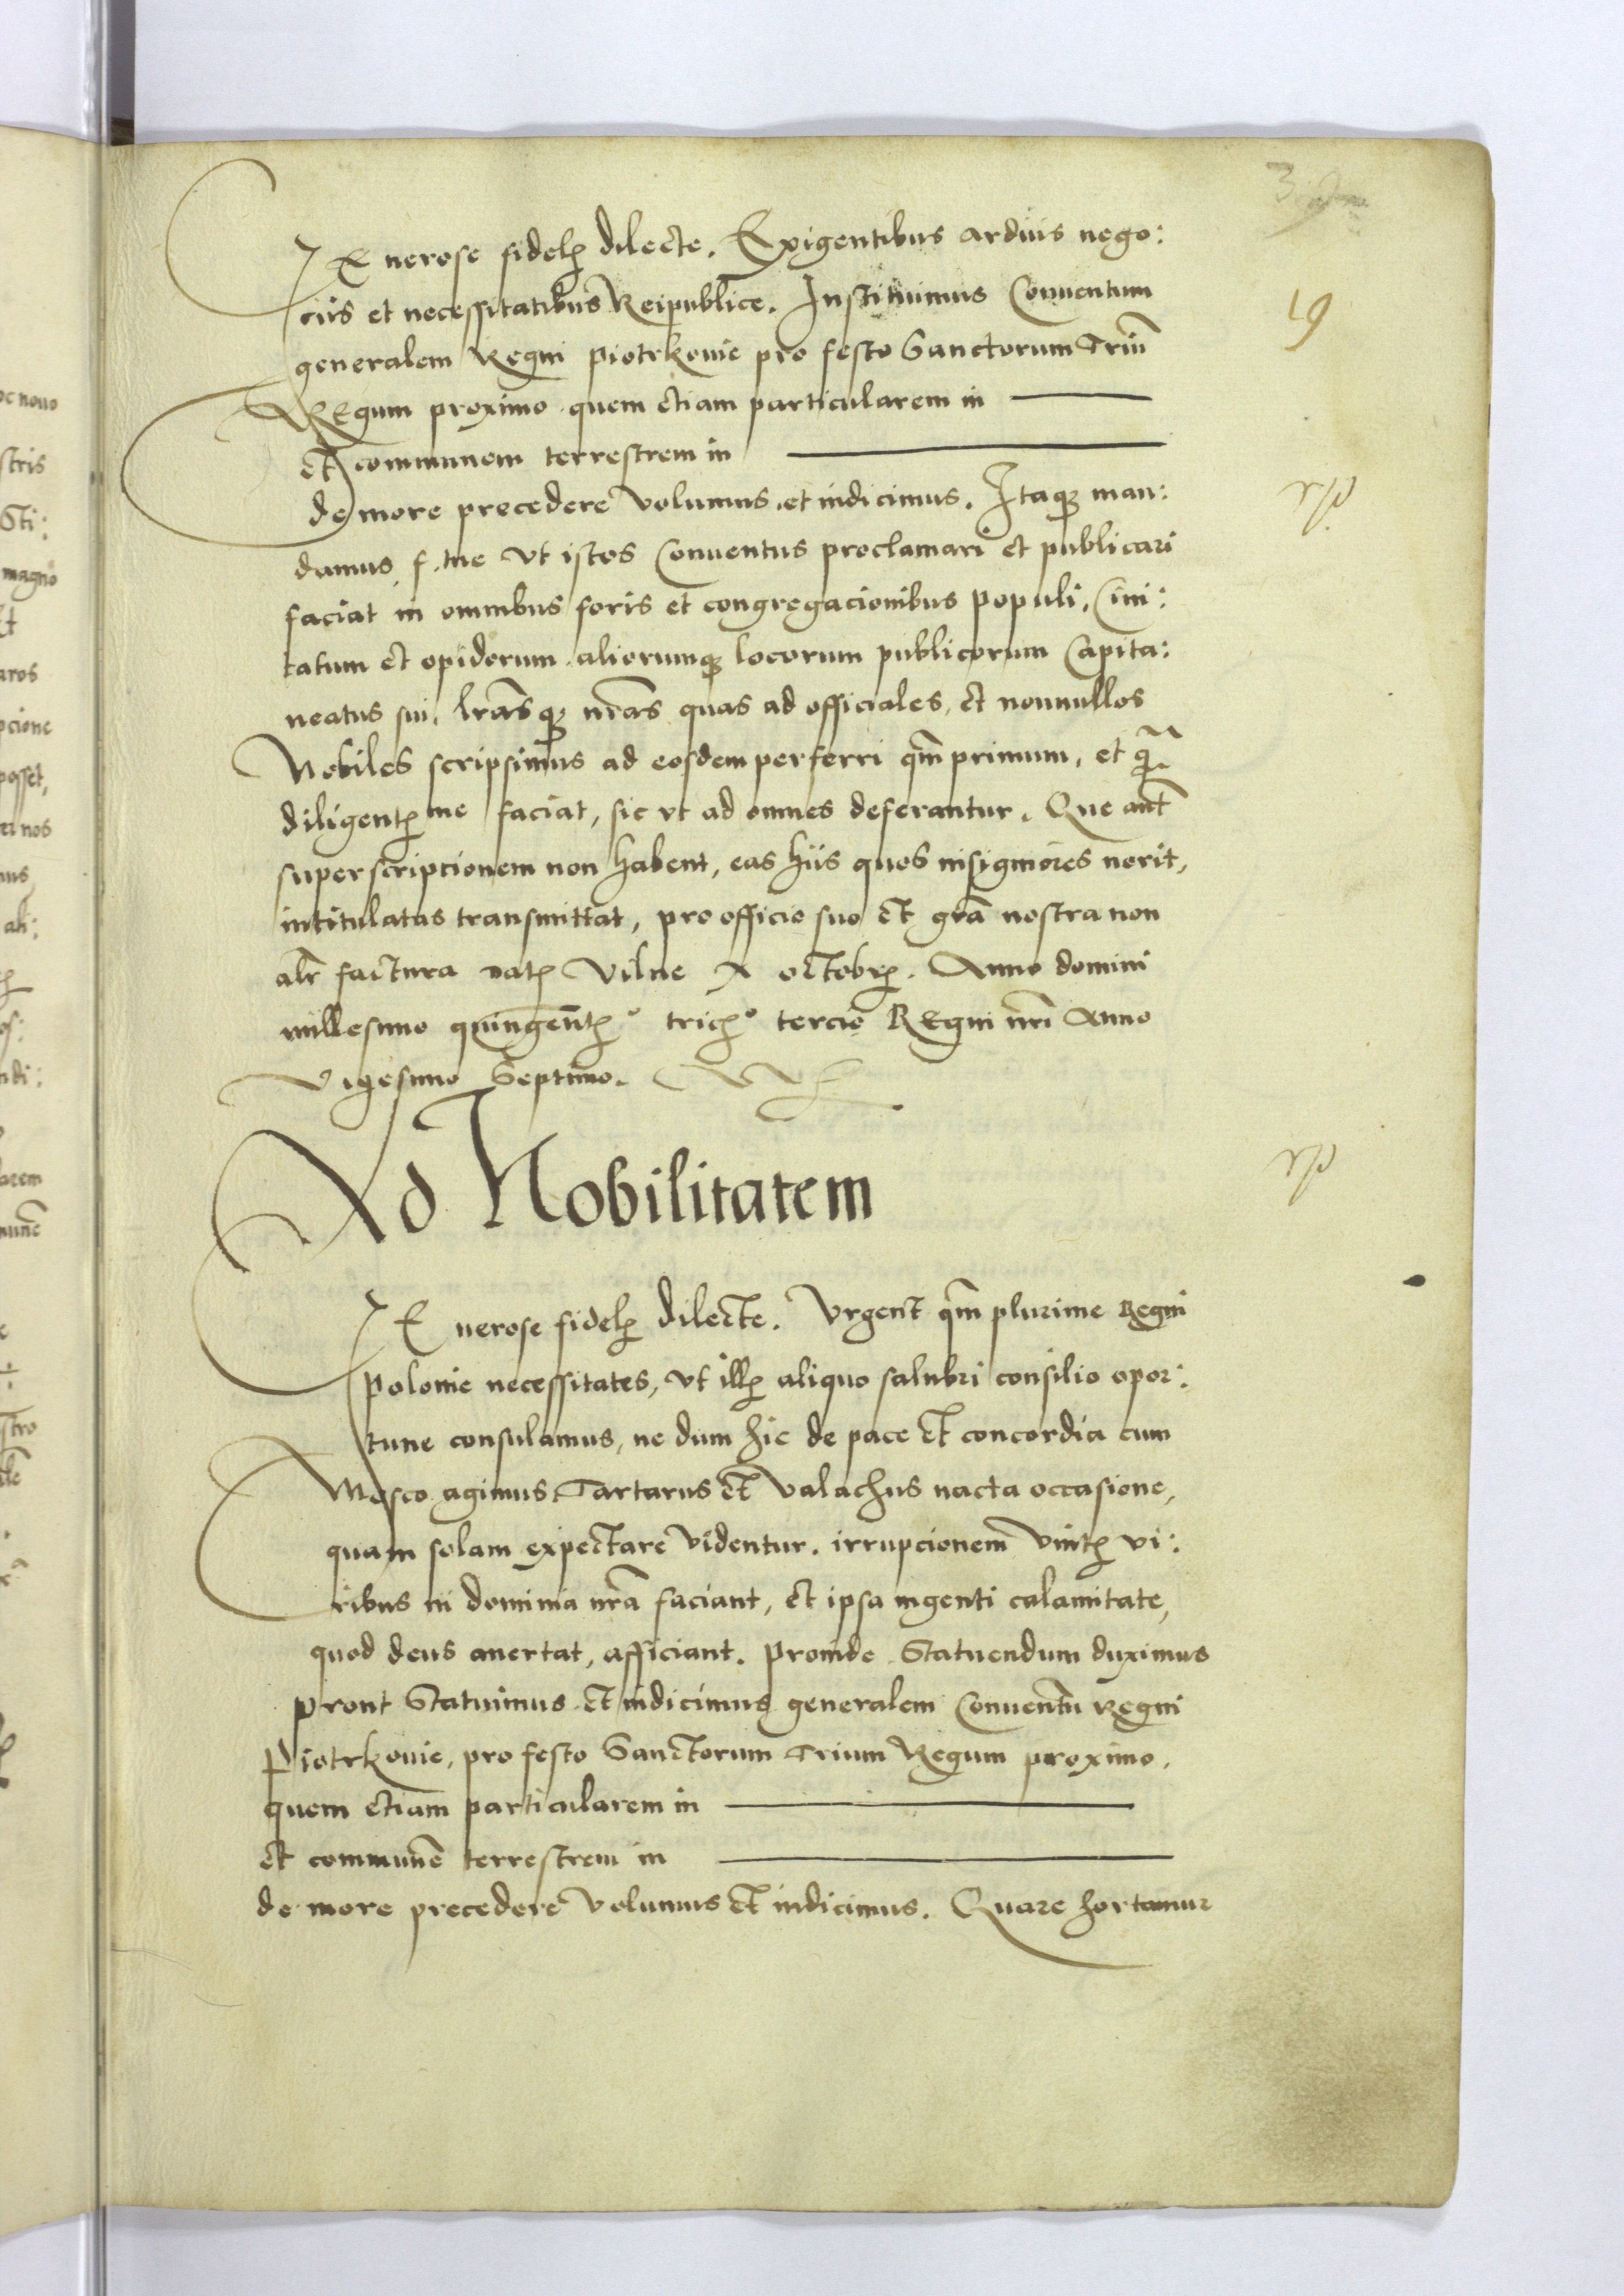 GEnerose fidelꝭ dilecte. Exigentibus arduis nego:
ciis et necessitatibus Reipublice. Instituimus Conuentum
generalem Regni piotrkouie pro festo Sanctorum Triũ
REgum proximo quem etiam particularem in
et communem terrestrem in
de more precedere volumus et indicimus. Itaqꝫ man:
damus f. tue vt istos Conuentus proclamari et publicari
faciat in omnibus foris et congregacionibus populi, Ciui:
tatum et opidorum aliorumqꝫ locorum publicorum Capita:
neatus sui, lr̃asqꝫ nr̃as quas ad officiales, et nonnullos
Nobiles scripsimus ad eosdem perferri qm̃ primum, et q̃
diligentꝭme faciat, sic vt ad omnes deferantur. Que aut̃
superscriptionem non habent, eas hiis quos insigniores norit,
intitulatas transmittat, pro officio suo et gr̃a nostra non
alr̃ factura datꝭ Vilne X octobrꝭ. Anno domini
millesimo quingentꝭo tricꝭo tercio REgni nr̃i Anno
Vigesimo Septimo.
Ad Nobilitatem
GEnerose fidelꝭ dilecte. Vrgent qm̃ plurime Regni
polonie necessitates, vt illꝭ aliquo salubri consilio opor:
tune consulamus, ne dum hic de pace et concordia cum
Mosco agimus Tartarus et Valachus nacta occasione,
quam solam expectare videntur. irrupcionem vnitꝭ vi:
ribus in dominia nr̃a faciant, et ipsa ingenti calamitate,
quod deus auertat, afficiant. proinde Statuendum duximus
prout Statuimus et indicimus generalem Conuentũ Regni
Piotrkouie, pro festo Sanctorum Trium Regum proximo.
quem etiam particularem in
et communẽ terrestrem in
de more precedere volumus et indicimus. Quare hortamur
19